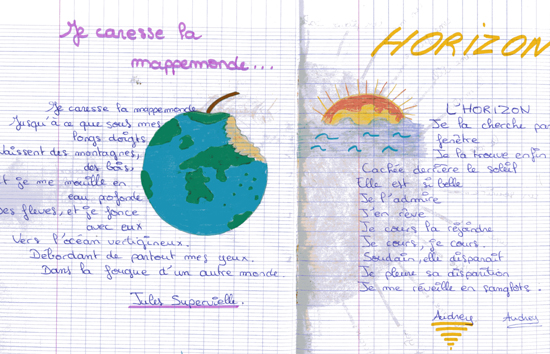 Je caresse la
mappemonde...
Je caresse la mappemonde
Jusqu'à ce que sous mes
longs doigts
naissent des montagnes,
des bois,
Et je me mouille en
eau profonde
Des fleuves, et je fonce
avec eux
Vers l'océan vertigineux.
Débordant de partout mes yeux.
Dans la fougue d'un autre monde.
Jules Supervielle.
HORIZON
L'HORIZON
Je la cherche par
fenêtre
Je la trouve enfin
Cachée derrière le soleil
Elle est si belle
Je l'admire
J'en rêve
Je cours la rejoindre
Je cours, je cours.
Soudain, elle disparaît
Je pleure sa disparition
Je me réveille en sanglots.
Audrey
Audrey